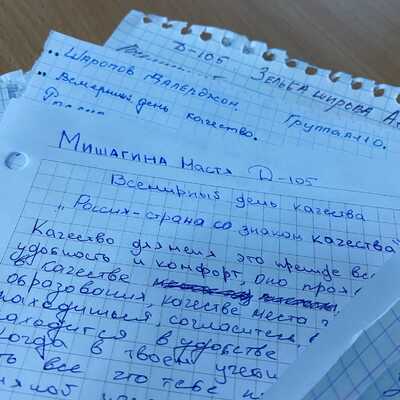 D-105
Зельбаширова А.
"Шаропов Валерджон Группа А110.
"Всемирный день качество.
Мишагина Настя D-105
Всемирный день качества
"Россия-страна со знаком качества"
Качество для меня это прежде вс
удобность и комфорт, оно проя
в качестве
образования, качестве места
находишься, согласитесь,
находится в удобстве
когда в твоей
ть все что тебе н